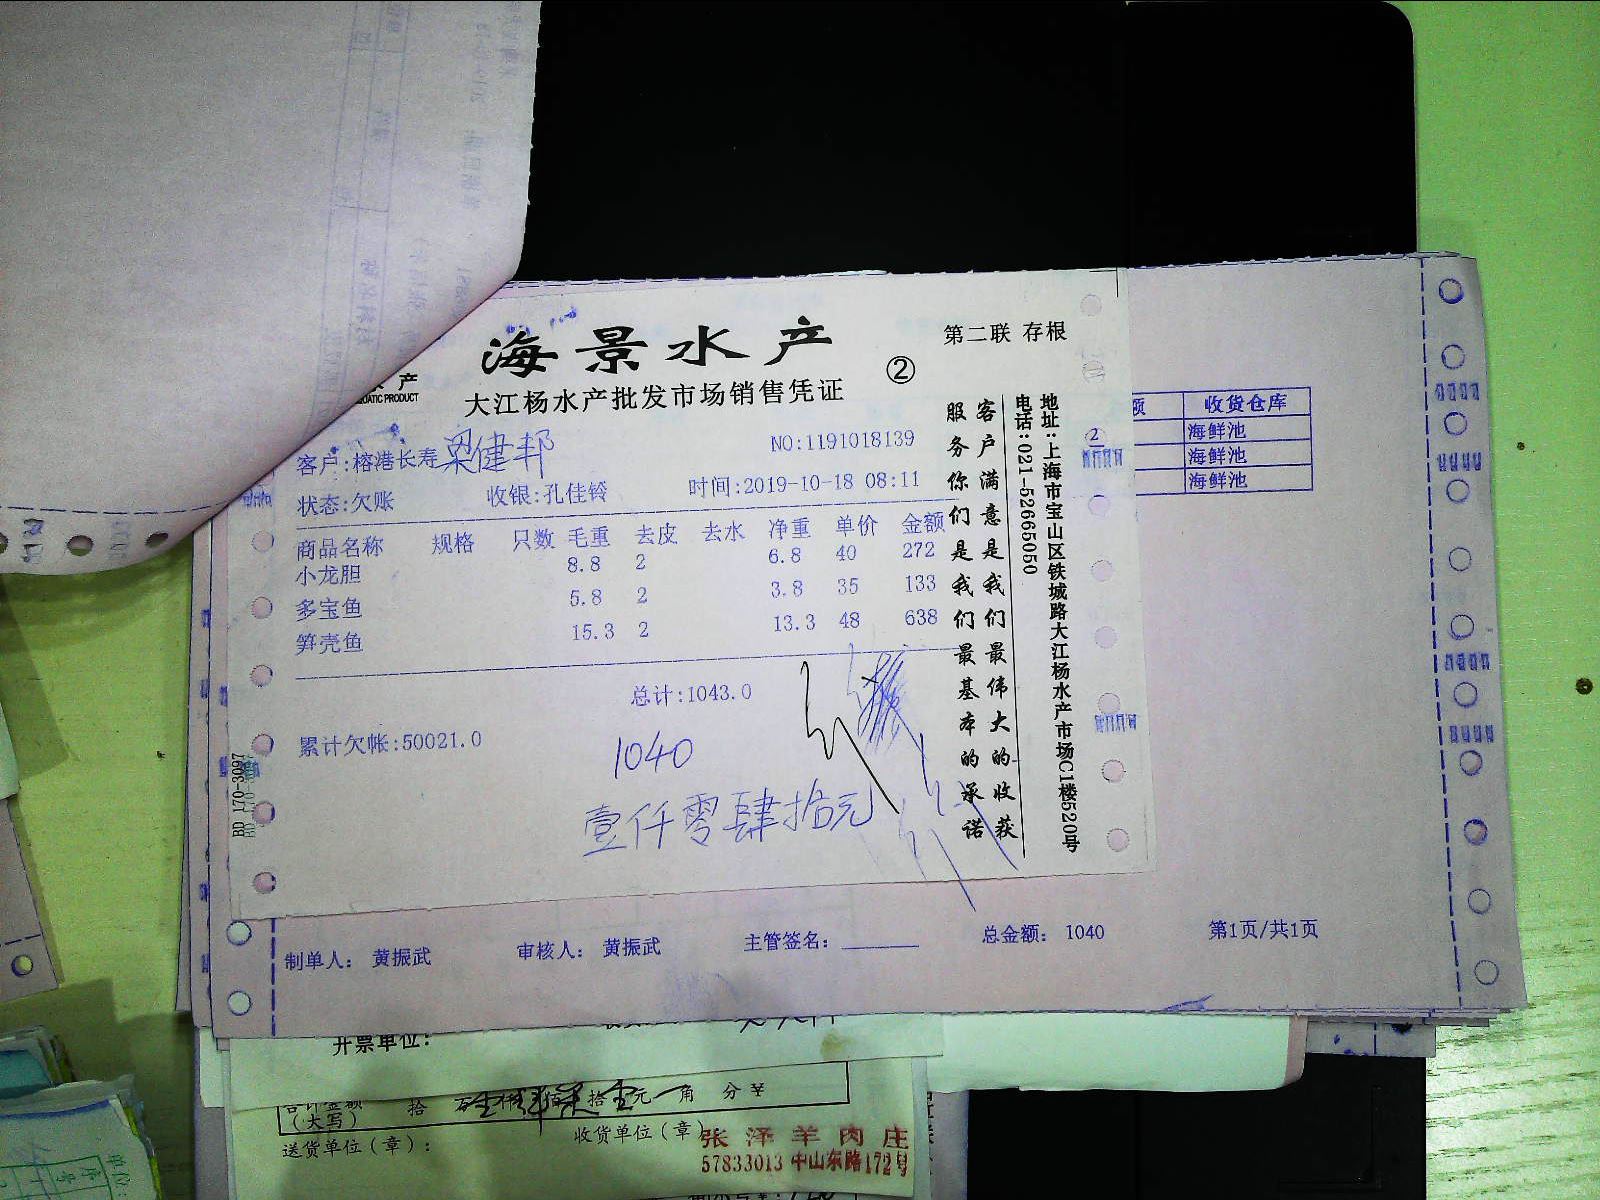 海景水产
第二联 存根
水产
AQUATIC PRODUCT
大江杨水产批发市场销售凭证
②
客户:榕港长寿 梁健邦
NO:1191018139
状态:欠账 收银:孔佳铃 时间:2019-10-18 08:11
商品名称 规格 只数 毛重 去皮 去水 净重 单价 金额
小龙胆 8.8 2 6.8 40 272
多宝鱼 5.8 2 3.8 35 133
笋壳鱼 15.3 2 13.3 48 638
总计:1043.0
累计欠帐:50021.0
1040
壹仟零肆拾元
客户满意是我们最伟大的收获
服务你们是我们最基本的承诺
地址:上海市宝山区铁城路大江杨水产市场C1楼520号
电话:021-52665050
BD 170-3097
额 收货仓库
海鲜池
海鲜池
海鲜池
制单人: 黄振武 审核人: 黄振武 主管签名: 总金额: 1040 第1页/共1页
开票单位:
合计金额
(大写)
拾 万 仟 佰 拾 元 角 分 ¥
送货单位(章): 收货单位(章)
张泽羊肉庄
57833013 中山东路172号
单位:
序号